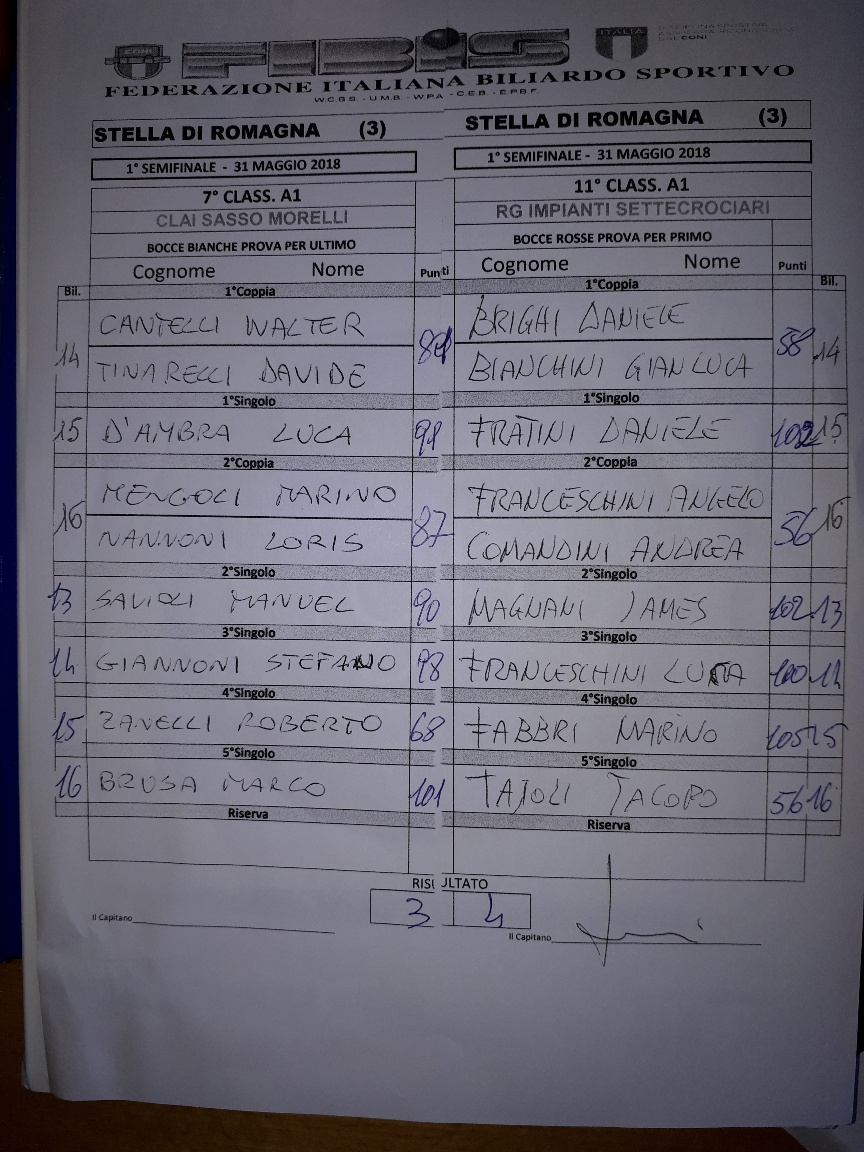 CONI FIBIS ITALIA
FEDERAZIONE ITALIANA BILIARDO SPORTIVO
W.C.B.S. - U.M.B. - W.P.A. - C.E.B. - E.P.B.F.
STELLA DI ROMAGNA (3) STELLA DI ROMAGNA (3)
1° SEMIFINALE - 31 MAGGIO 2018 1° SEMIFINALE - 31 MAGGIO 2018
7° CLASS. A1 11° CLASS. A1
CLAI SASSO MORELLI RG IMPIANTI SETTECROCIARI
BOCCE BIANCHE PROVA PER ULTIMO BOCCE ROSSE PROVA PER PRIMO
Cognome Nome Punti Cognome Nome Punti
Bil. 1°Coppia 1°Coppia Bil.
CANTELLI WALTER BRIGHI DANIELE
14 58 14
TINARELLI DAVIDE BIANCHINI GIANLUCA
1°Singolo 1°Singolo
15 D'AMBRA LUCA 91 FRATINI DANIELE 102 15
2°Coppia 2°Coppia
MENGOLI MARINO FRANCESCHINI ANGELO
16 87 56 16
NANNONI LORIS COMANDINI ANDREA
2°Singolo 2°Singolo
13 SAVIOLI MANUEL 90 MAGNANI JAMES 102 13
3°Singolo 3°Singolo
14 GIANNONI STEFANO 98 FRANCESCHINI LUCA 100 14
4°Singolo 4°Singolo
15 ZANELLI ROBERTO 68 FABBRI MARINO 105 15
5°Singolo 5°Singolo
16 BRUSA MARCO 101 TAIOLI JACOPO 56 16
Riserva Riserva
RISULTATO
3 4
Il Capitano Il Capitano